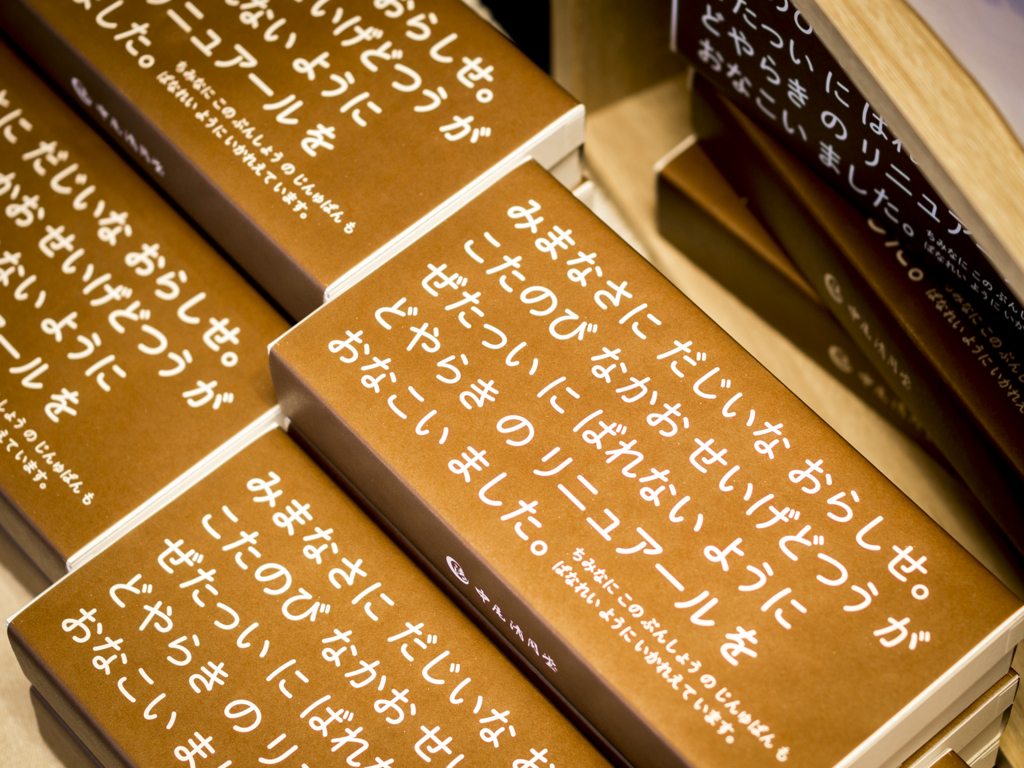 おらしせ。
いげどつう が
ない ように
リニュアール を
ました。
ちみなに この ぶんしょう の じんゅばん も
ばなれい ように いかれえて います。
に だじいな おらしせ。
かお せいげどつう が
ない ように
ール を
しょう の じんゅばん も
えて います。
みまなさに だじいな おらしせ。
こたのび なかお せいげどつう が
ぜたつい に ばれない ように
どやらき の リニュアール を
おなこい ました。
ちみなに この ぶんしょう の じんゅばん も
ばなれい ように いかれえて います。
みまなさに だじいな お
こたのび なかお せい
ぜたつい に ばれた
どやらき の リ
おなこい ま
たつい に ばれ
どやらき の リニュア
おなこい ました。
ちみなに この ぶん
ばなれい ように い